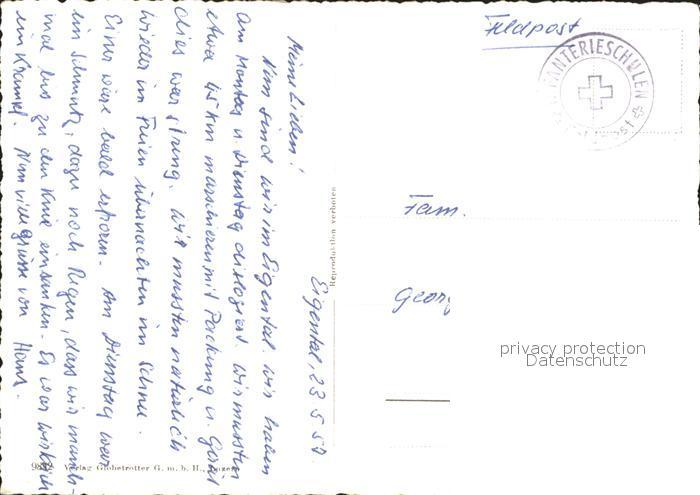 Eigental, 23.5.57.
Meine Lieben!
Nun sind wir im Eigental. Wir haben
am Montag u. Dienstag disloziert. Wir mussten
etwa 45 km marschieren mit Packung u.
dies war streng. Wir mussten natürlich
wieder im Freien übernachten im Schnee.
Einer wäre bald erfroren. Am Dienstag war
ein Schmutz, dazu noch Regen, dass wir manch-
mal bis zu den Knie einsanken. Es war wirklich
ein Krampf. Nun viele Grüsse von Hans.
Feldpost
INFANTERIESCHULEN
Feldpost
Fam.
Georg
Reproduktion verboten
Verlag Globetrotter G. m. b. H., Luzern
privacy protection
Datenschutz